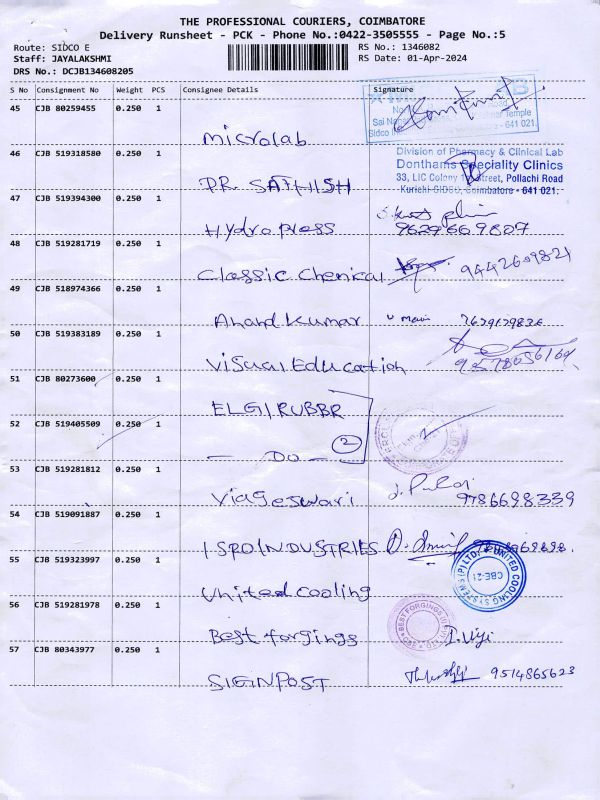 THE PROFESSIONAL COURIERS, COIMBATORE
Delivery Runsheet - PCK - Phone No.:0422-3505555 - Page No.:5
Route: SIDCO E RS No.: 1346082
Staff: JAYALAKSHMI RS Date: 01-Apr-2024
DRS No.: DCJB134608205
S No Consignment No Weight PCS Consignee Details Signature
45 CJB 80259455 0.250 1
Microlab
Temple
- 641 021.
46 CJB 519318580 0.250 1
DR. SATHISH
Division of Pharmacy & Clinical Lab
Donthams Speciality Clinics
33, LIC Colony 1st Street, Pollachi Road
Kurichi SIDCO, Coimbatore - 641 021.
47 CJB 519394300 0.250 1
Hydro press 9629669807
48 CJB 519281719 0.250 1
Classic Chemical 9442609821
49 CJB 518974366 0.250 1
Anand Kumar
50 CJB 519383189 0.250 1
Visual Education
51 CJB 80273600 0.250 1
ELGI RUBBR
52 CJB 519405509 0.250 1
— DO — 2
53 CJB 519281812 0.250 1
Viageswari 9786698339
54 CJB 519091887 0.250 1
I.SRO INDUSTRIES
55 CJB 519323997 0.250 1
United cooling
UNITED COOLING SYSTEMS (P) LTD.
CBE-21
56 CJB 519281978 0.250 1
Best forgings
BEST FORGINGS
57 CJB 80343977 0.250 1
SIGINPOST 9514865623